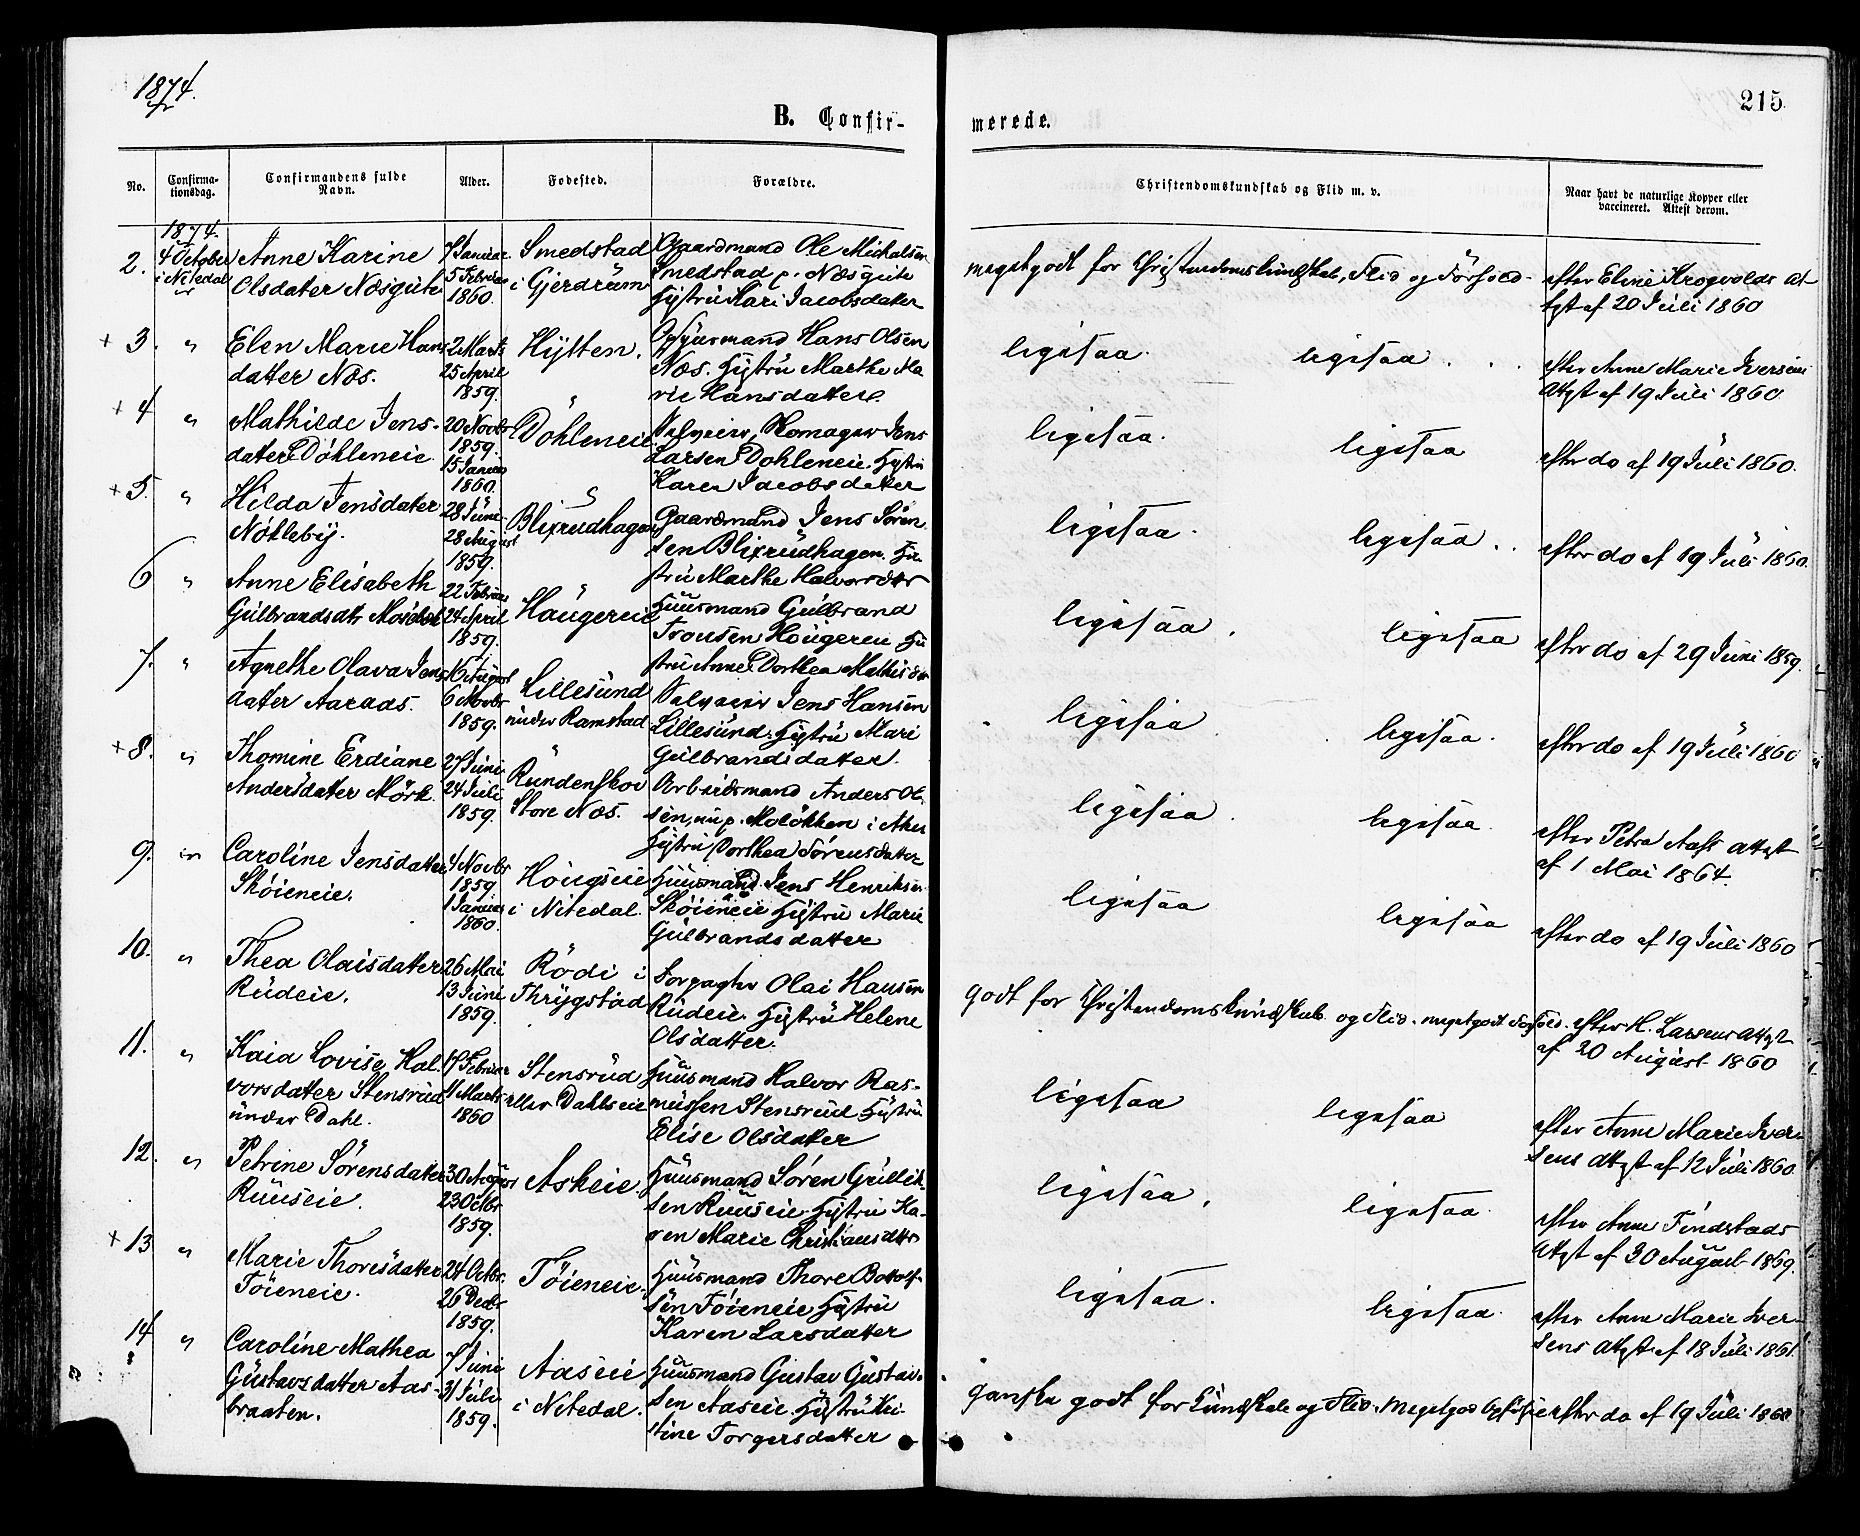 1874.
215.
B. Confir-
merede.
No.
Confirma-
tionsdag.
Confirmandens fulde
Navn.
Alder.
Fødested.
Forældre.
Christendomskundskab og Flid m. v.
Naar havt de naturlige Kopper eller
vaccineret. Attest derom.
1874.
2.
4 October
i Nitedal
Anne Karine
Olsdater Næsgute
7 Januar
5 Februar
1860.
Smedstad
i Gjerdrum
Gaardmand Ole Michalsen
Smedstad p. Næsgute
Hustru Kari Jacobsdatter
megetgodt for Christendomskundskab, Flid og Forhold.
efter Eline Krogvolds At-
test af 20 Juli 1860
+ 3.
"
Elen Marie Hans
datter Næs.
2 Marts
25 April
1859.
Hytten.
Opsynsmand Hans Olsen
Næs. Hustru Marthe Ma
rie Hansdatter.
ligesaa.
ligesaa.
efter Anne Marie Iversens
Attst af 19 Juli 1860
+ 4
"
Mathilde Jens-
dater Döhleneie
20 Novbr
1859.
15 Januar
1860.
"
Döhleneie
Selveier, Skomager Jens
Larsen Döhleneie. Hustru
Karen Jacobsdatter
ligesaa.
ligesaa
efter do af 19 Juli 1860.
+ 5.
"
Hilda Jensdater
Nökleby.
28 Juni
28 August
1859.
"
Blixrudhagen
Gaardmand Jens Sören-
sen Blixrudhagen. Hu-
stru Marthe Halvorsdtr
ligesaa.
ligesaa.
efter do af 19 Juli 1860.
6
"
Anne Elisabeth
Gulbrandsdtr
22 Februar
24 April
1859.
"
Haugereie
Huusmand Gulbrand
Tronsen Hougereie Hu
stru Anne Dorthea Mathisdtr
ligesaa.
ligesaa
efter do af 29 Juni 1859.
7.
"
Agnethe Olava Jens
dater Aaraas.
16 August
6 Novbr
1859.
Lillesund
under Ramstad
Selveier Jens Hansen
Lillesund. Hustru Mari
Gulbrandsdatter.
ligesaa
ligesaa.
efter do af 19 Juli 1860
+ 8.
"
Thomine Erdiane
Andersdater Mörk.
27 Juni
24 Juli
1859.
"
Rundenskov
Store Næs.
Arbeidsmand Anders Ol-
sen, nu p. Molökken i Aker
Hustru Dorthea Sörensdatter
ligesaa
ligesaa.
efter Petra Aass Attst
af 1 Mai 1864.
9.
"
Caroline Jensdatter
Sköieneie.
4 Novbr
1859.
1 Januar
1860.
Hougseie
i Nitedal.
Huusmand Jens Henriksen
Sköieneie Hustru Marie
Gulbrandsdatter
ligesaa
ligesaa
efter do af 19 Juli 1860
10.
"
Thea Olaisdatter
Rudeie.
26 Mai
13 Juni
1859.
Rödi i
Thrygstad
Forpagter Olai Hansen
Rudeie. Hustru Helene
Olsdatter.
godt for Christendomskundskab og Flid. megetgodt Forhold.
efter H. Larsens Attst
af 20 August 1860
11.
"
Kaia Lovise Hal-
vorsdatter Stensrud
under Dahl.
17 Februar
11 Marts
1860
Stensrud
eller Dahlseie
Huusmand Halvor Ras-
mussen Stensrud Hustru
Elise Olsdatter
ligesaa
ligesaa
efter Anne Marie Iver-
sens Attst af 12 Juli 1860.
12.
"
Petrine Sörensdater
Ruuseie.
30 August
23 Octbr
1859.
Askeie
Huusmand Sören Gullik-
sen Ruuseie Hustru Ka-
ren Marie Christiansdtr
ligesaa.
ligesaa.
efter Anne Findstads
Attst af 30 August 1869.
+ 13
"
Marie Thoresdater
Töieneie.
24 Octbr.
26 Decbr
1859.
Töieneie.
Huusmand Thore Botolf-
sen Töieneie Hustru
Karen Larsdatter
ligesaa.
ligesaa.
efter Anne Marie Iver-
sens Attst af 18 Juli 1861.
14
"
Caroline Mathea
Gustavsdatter Aas-
braaten.
7 Juni
31 Juli
1859.
Aaseie
i Nitedal.
Huusmand Gustav Gustav-
sen Aaseie Hustru Kri-
stine Torgersdatter
ganske godt for Kundskab og Flid. Megetgod Opførsel
efter do af 19 Juli 1860